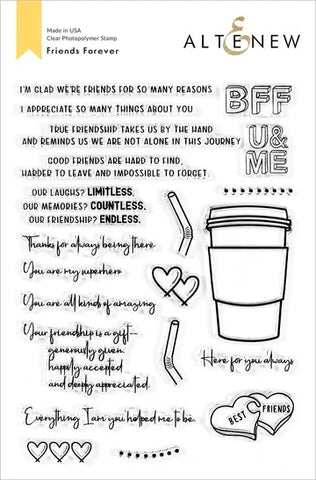 Made in USA
Clear Photopolymer Stamp
Friends Forever
ALTENEW
I'M GLAD WE'RE FRIENDS FOR SO MANY REASONS
I APPRECIATE SO MANY THINGS ABOUT YOU
BFF
TRUE FRIENDSHIP TAKES US BY THE HAND
AND REMINDS US WE ARE NOT ALONE IN THIS JOURNEY
U&
ME
GOOD FRIENDS ARE HARD TO FIND,
HARDER TO LEAVE AND IMPOSSIBLE TO FORGET.
OUR LAUGHS? LIMITLESS.
OUR MEMORIES? COUNTLESS.
OUR FRIENDSHIP? ENDLESS.
Thanks for always being there
You are my superhero
You are all kinds of amazing
Your friendship is a gift--
generously given,
happily accepted
and deeply appreciated.
Here for you always
Everything I am you helped me to be.
BEST FRIENDS